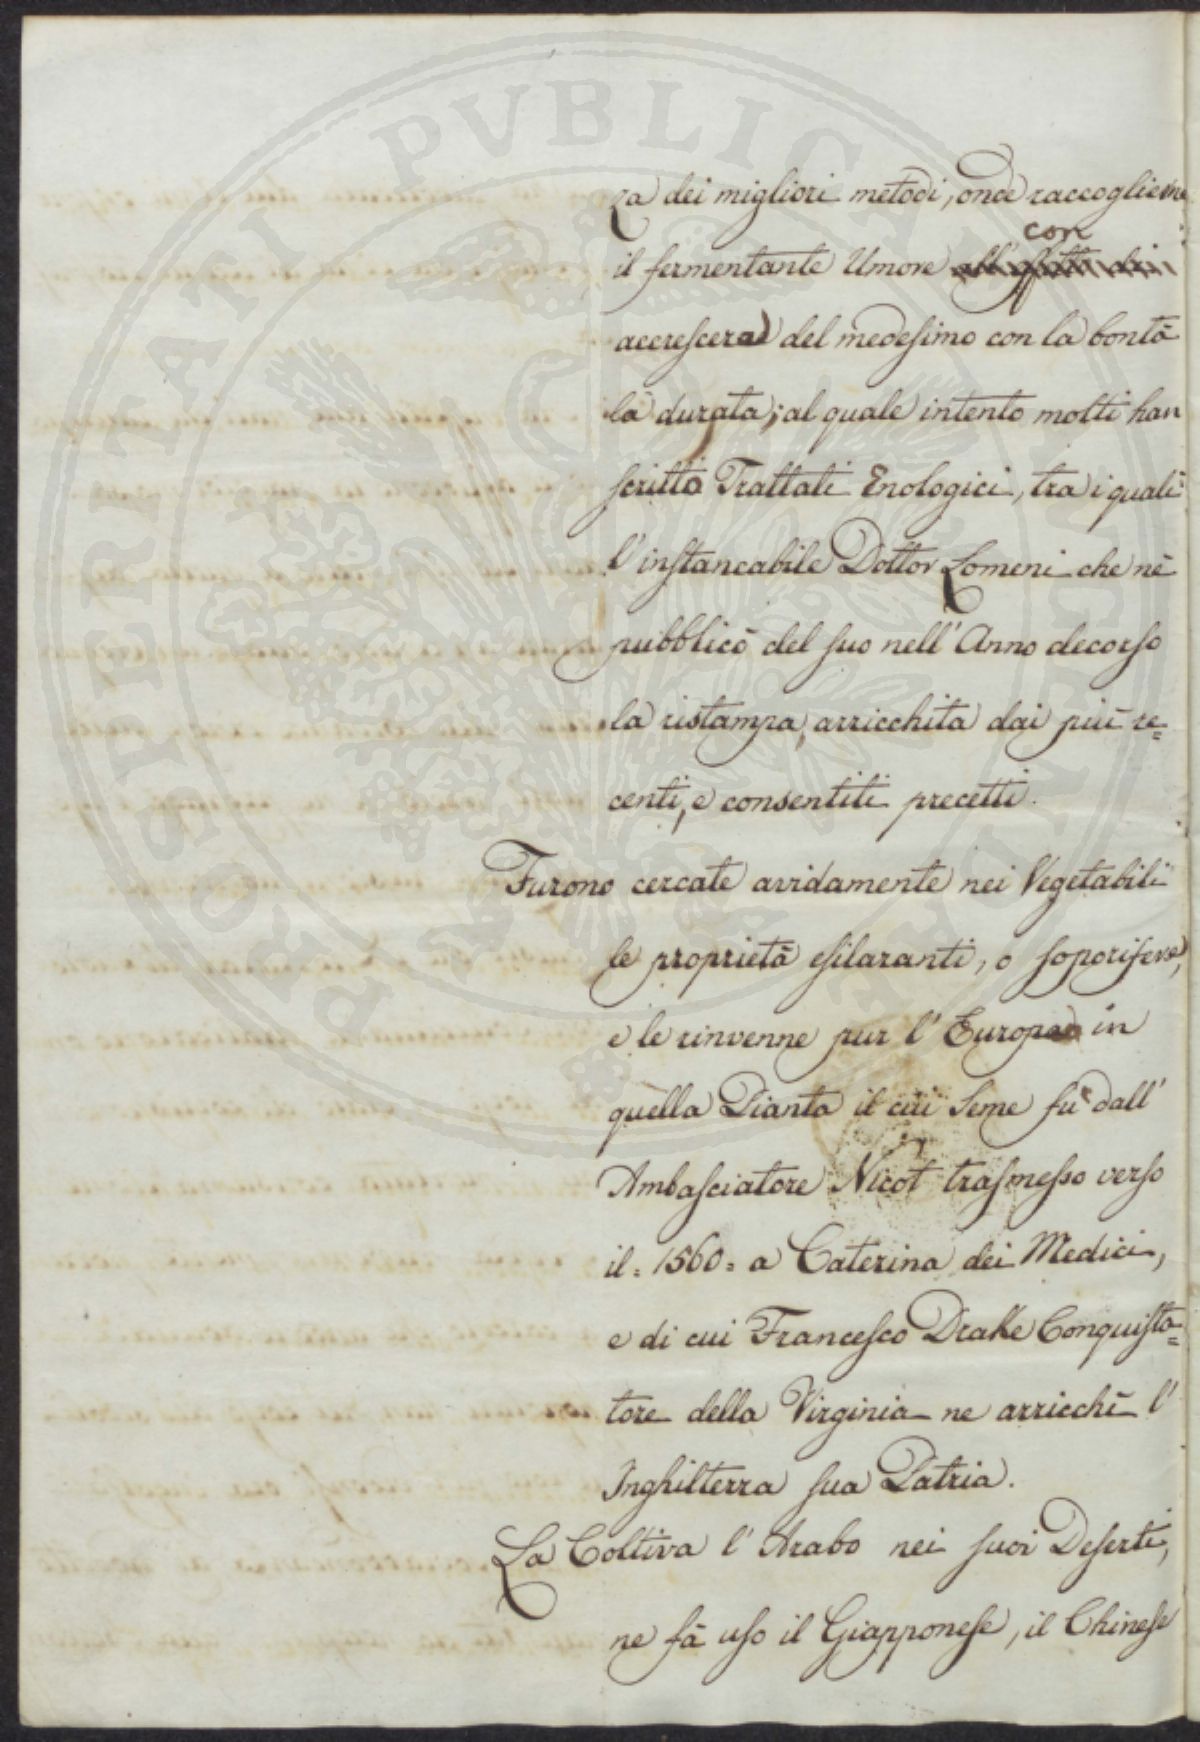 za dei migliori metodi, onde raccoglierne
con
il fermentante Umore all'effetto di
accrescera del medesimo con la bontà
la durata; al quale intento molti han
scritto Trattati Enologici, tra i quali
l'instancabile Dottor Lomeni che nè
pubblicò del suo nell'Anno decorso
la ristampa, arricchita dai più re=
centi, e consentiti precetti.
Furono cercate avidamente nei Vegetabili
le proprietà esilaranti, o soporifere,
e le rinvenne pur l'Europeo in
quella Pianta il cui seme fu dall'
Ambasciatore Nicot trasmesso verso
il = 1560 = a Caterina dei Medici,
e di cui Francesco Drake Conquista=
tore della Virginia ne arricchì l'
Inghilterra sua Patria.
La Coltiva l'Arabo nei suoi Deserti,
ne fà uso il Giapponese, il Chinese
PROSPERITATI PVBLICAE AVGENDAE